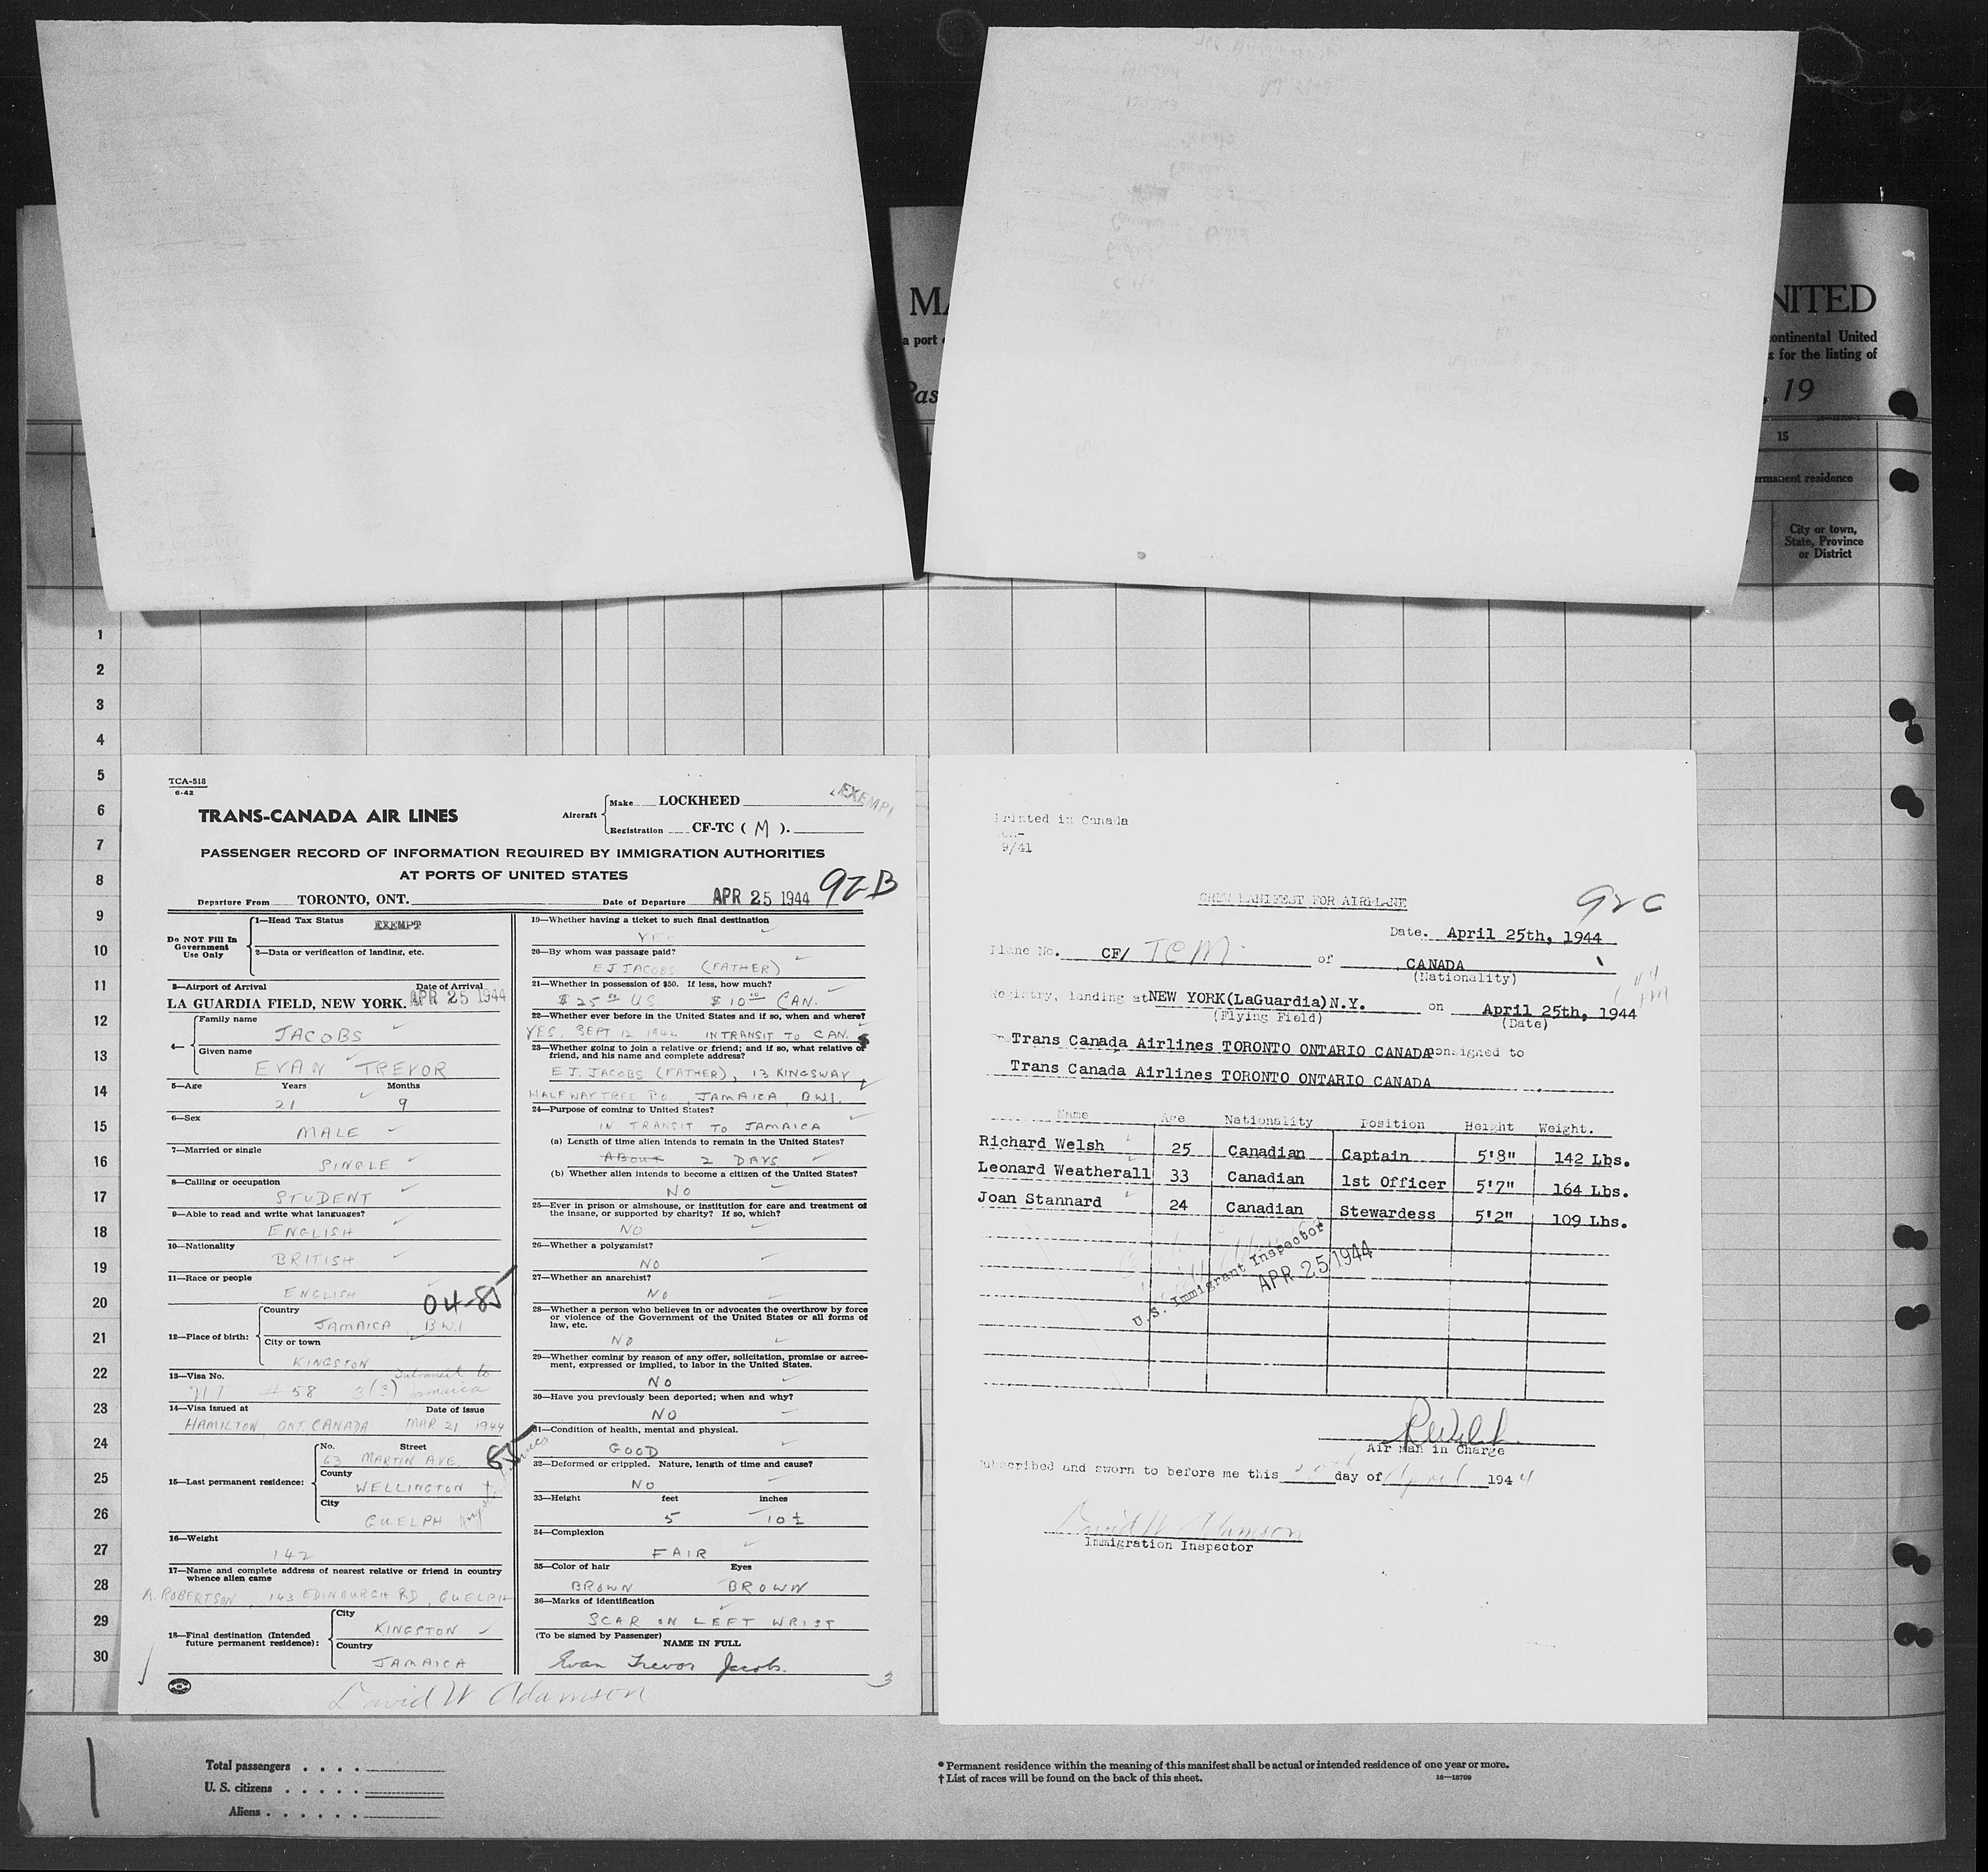 MA
NITED
a port
ontinental United
s for the listing of
Pas
, 19
15
ermanent residence
City or town,
State, Province
or District
1
2
3
4
5
6
7
8
9
10
11
12
13
14
15
16
17
18
19
20
21
22
23
24
25
26
27
28
29
30
TCA-518
6-42
TRANS-CANADA AIR LINES
Aircraft
Make LOCKHEED
Registration CF-TC ( M ).
EXEMPT
PASSENGER RECORD OF INFORMATION REQUIRED BY IMMIGRATION AUTHORITIES
AT PORTS OF UNITED STATES
92B
Departure From TORONTO, ONT. Date of Departure APR 25 1944
Do NOT Fill In
Government
Use Only
1—Head Tax Status EXEMPT
2—Data or verification of landing, etc.
3—Airport of Arrival Date of Arrival
LA GUARDIA FIELD, NEW YORK. APR 25 1944
4—
Family name
JACOBS
Given name
EVAN TREVOR
5—Age Years Months
21 9
6—Sex
MALE
7—Married or single
SINGLE
8—Calling or occupation
STUDENT
9—Able to read and write what languages?
ENGLISH
10—Nationality
BRITISH
11—Race or people
ENGLISH
04-85
12—Place of birth:
Country
JAMAICA, B.W.I.
City or town
KINGSTON
13—Visa No.
# 58 3(3) Intransit to
Jamaica
14—Visa issued at Date of issue
HAMILTON ONT. CANADA MAR 21 1944
15—Last permanent residence:
No. Street
63 MARTIN AVE.
County
WELLINGTON
City
GUELPH
16—Weight
142
17—Name and complete address of nearest relative or friend in country
whence alien came
A. ROBERTSON, 143 EDINBURGH RD, GUELPH
18—Final destination (Intended
future permanent residence):
City
KINGSTON
Country
JAMAICA
19—Whether having a ticket to such final destination
YES
20—By whom was passage paid?
E J JACOBS (FATHER)
21—Whether in possession of $50. If less, how much?
$ 25 US. $ 10 CAN.
22—Whether ever before in the United States and if so, when and where?
YES. SEPT 12 1942 IN TRANSIT TO CAN.
23—Whether going to join a relative or friend; and if so, what relative or
friend, and his name and complete address?
E J. JACOBS (FATHER), 13 KINGSWAY,
HALF WAY TREE P.O., JAMAICA, B.W.I.
24—Purpose of coming to United States?
IN TRANSIT TO JAMAICA
(a) Length of time alien intends to remain in the United States?
About 2 DAYS
(b) Whether alien intends to become a citizen of the United States?
NO
25—Ever in prison or almshouse, or institution for care and treatment of
the insane, or supported by charity? If so, which?
NO
26—Whether a polygamist?
NO
27—Whether an anarchist?
NO
28—Whether a person who believes in or advocates the overthrow by force
or violence of the Government of the United States or all forms of
law, etc.
NO
29—Whether coming by reason of any offer, solicitation, promise or agree-
ment, expressed or implied, to labor in the United States.
NO
30—Have you previously been deported; when and why?
NO
31—Condition of health, mental and physical.
GOOD
32—Deformed or crippled. Nature, length of time and cause?
NO
33—Height feet inches
5 10½
34—Complexion
FAIR
35—Color of hair Eyes
BROWN BROWN
36—Marks of identification
SCAR ON LEFT WRIST
(To be signed by Passenger) NAME IN FULL
Evan Trevor Jacobs.
3
David W Adamson
Printed in Canada
9/41
CREW MANIFEST FOR AIRPLANE
92C
Date. April 25th, 1944
Plane No. CF/ TCM of CANADA
(Nationality)
Registry, landing at NEW YORK(LaGuardia)N.Y. on April 25th, 1944
(Flying Field) (Date)
Trans Canada Airlines TORONTO ONTARIO CANADA consigned to
Trans Canada Airlines TORONTO ONTARIO CANADA
Name Age Nationality Position Height Weight.
Richard Welsh 25 Canadian Captain 5'8" 142 Lbs.
Leonard Weatherall 33 Canadian 1st Officer 5'7" 164 Lbs.
Joan Stannard 24 Canadian Stewardess 5'2" 109 Lbs.
U.S. Immigrant Inspector
APR 25 1944
R Welsh
Air Man in Charge
Subscribed and sworn to before me this 25th day of April 1944
David W Adamson
Immigration Inspector
Total passengers
U. S. citizens
Aliens
* Permanent residence within the meaning of this manifest shall be actual or intended residence of one year or more.
† List of races will be found on the back of this sheet.
16—18709